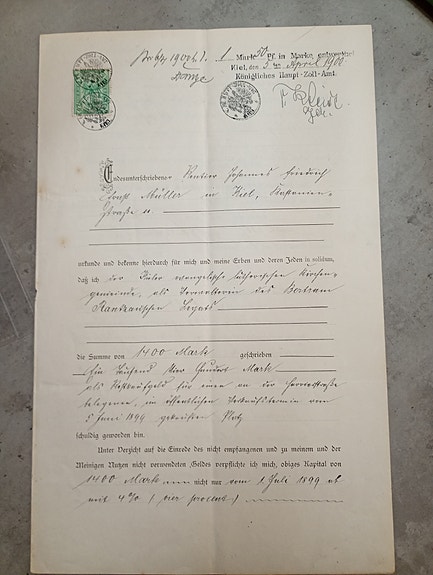 1 Mark 50 Pf. in Marken entwertet
Kiel, den 3ten April 1900
Königliches Haupt-Zoll-Amt.
Endesunterschriebener Rentier Johannes Friedrich
Ernst Müller in Kiel, Kastanien-
straße
urkunde und bekenne hierdurch für mich und meine Erben und deren Jeden in solidum,
daß ich der Kieler evangelisch lutherischen Kirchen-
gemeinde, als Verwalterin des Bertram
Rantzauischen Legats
die Summe von 1400 Mark geschrieben
Ein Tausend Vier Hundert Mark
als Restkaufgeld für einen an der
belegenen, im öffentlichen Verkaufstermin vom
5 Juni 1899 gekauften Platz
schuldig geworden bin.
Unter Verzicht auf die Einrede des nicht empfangenen und zu meinem und der
Meinigen Nutzen nicht verwendeten Geldes verpflichte ich mich, obiges Kapital von
1400 Mark nicht nur vom 1 Juli 1899 ab
mit 4% (vier procent)